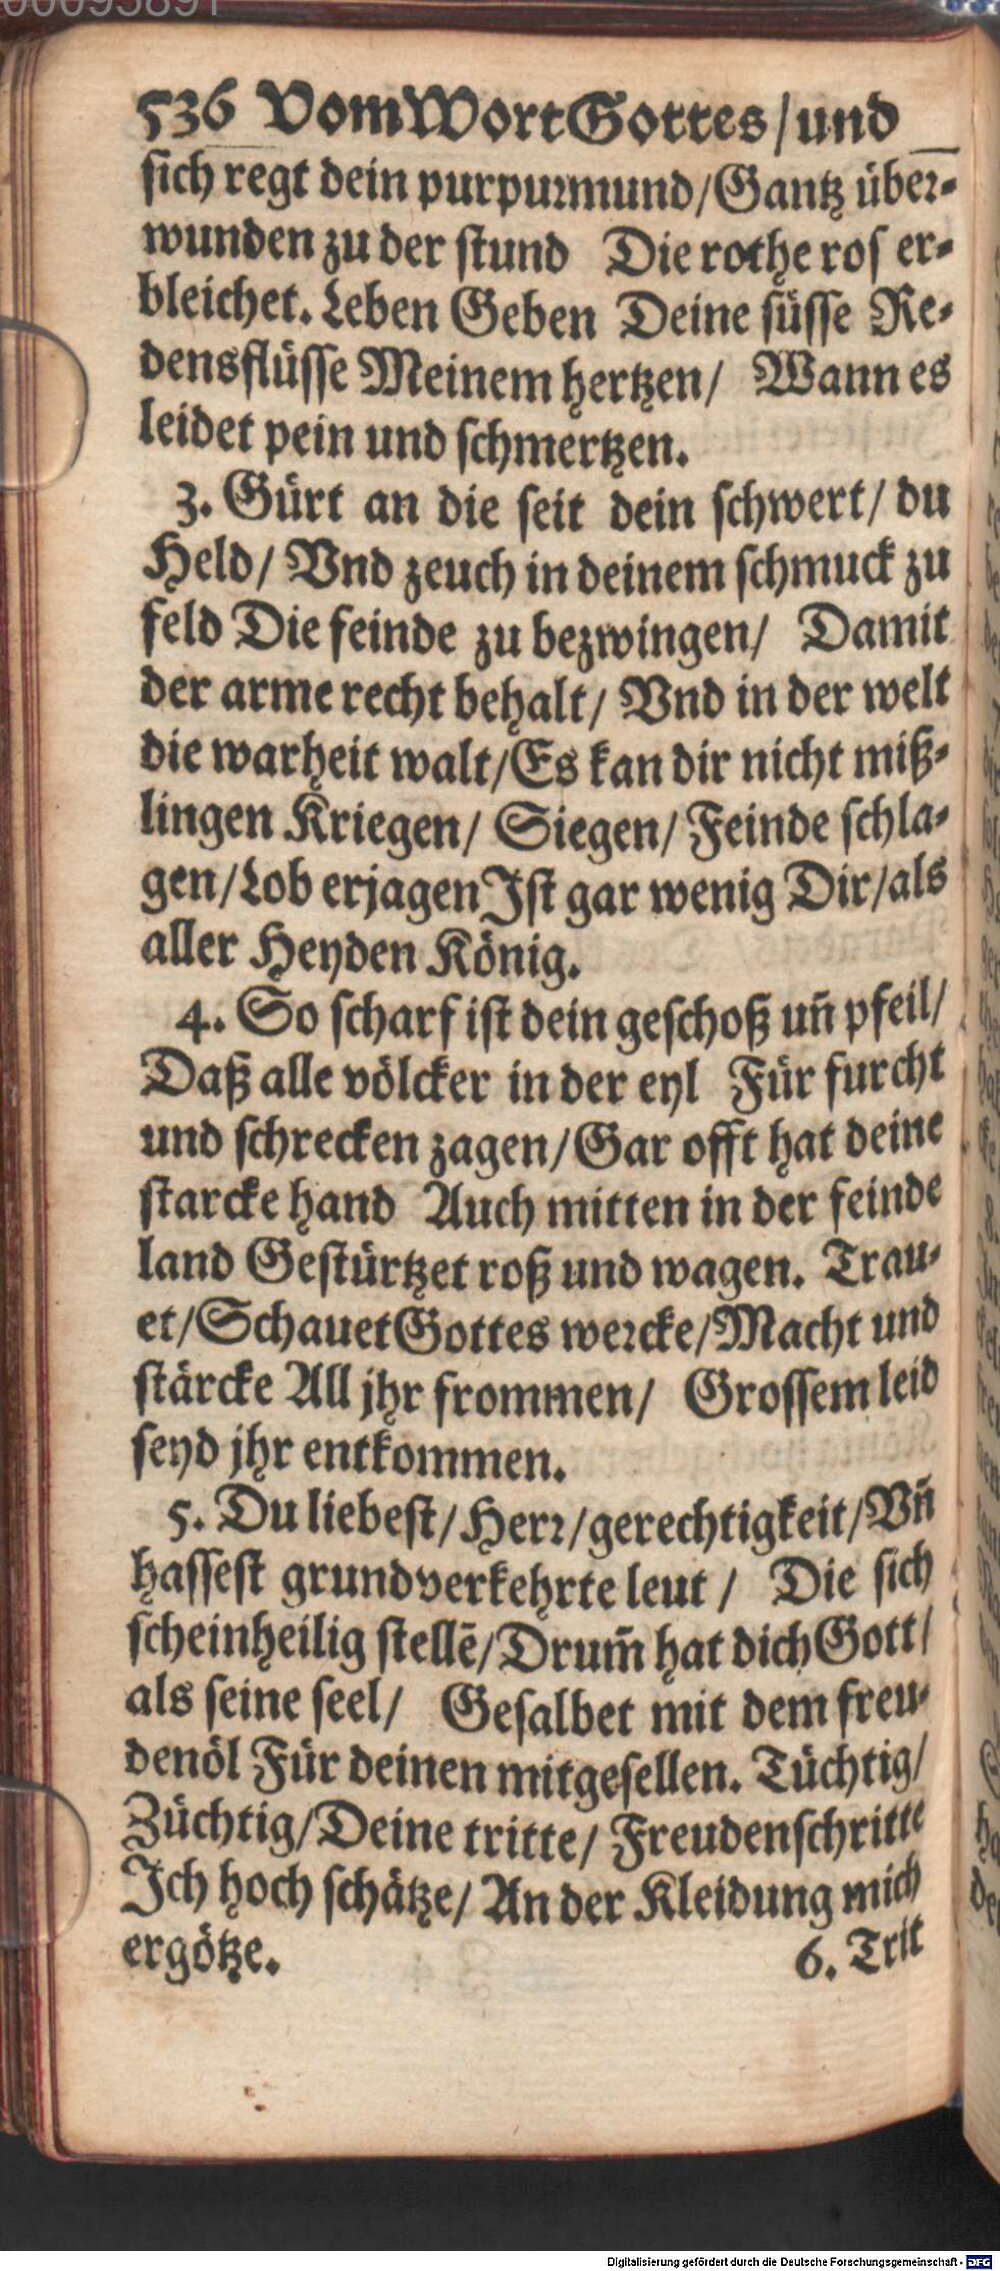 00095891
536 Vom Wort Gottes/und
sich regt dein purpurmund/Gantz über-
wunden zu der stund Die rothe ros er-
bleichet. Leben Geben Deine süsse Re-
densflüsse Meinem hertzen/ Wann es
leidet pein und schmertzen.
3. Gürt an die seit dein schwert/ du
Held/ Vnd zeuch in deinem schmuck zu
feld Die feinde zu bezwingen/ Damit
der arme recht behalt/ Vnd in der welt
die warheit walt/Es kan dir nicht miß-
lingen Kriegen/ Siegen/ Feinde schla-
gen/Lob erjagen Jst gar wenig Dir/als
aller Heyden König.
4. So scharf ist dein geschoß uñ pfeil/
Daß alle völcker in der eyl Für furcht
und schrecken zagen/Gar offt hat deine
starcke hand Auch mitten in der feinde
land Gestürtzet roß und wagen. Trau-
et/Schauet Gottes wercke/Macht und
stärcke All jhr frommen/ Grossem leid
seyd jhr entkommen.
5. Du liebest/Herr/gerechtigkeit/Vñ
hassest grundverkehrte leut / Die sich
scheinheilig stellẽ/Drum̃ hat dich Gott/
als seine seel/ Gesalbet mit dem freu-
denöl Für deinen mitgesellen. Tüchtig/
Züchtig/Deine tritte/ Freudenschritte
Jch hoch schätze/ An der Kleidung mich
ergötze.
6. Trit
Digitalisierung gefördert durch die Deutsche Forschungsgemeinschaft - DFG